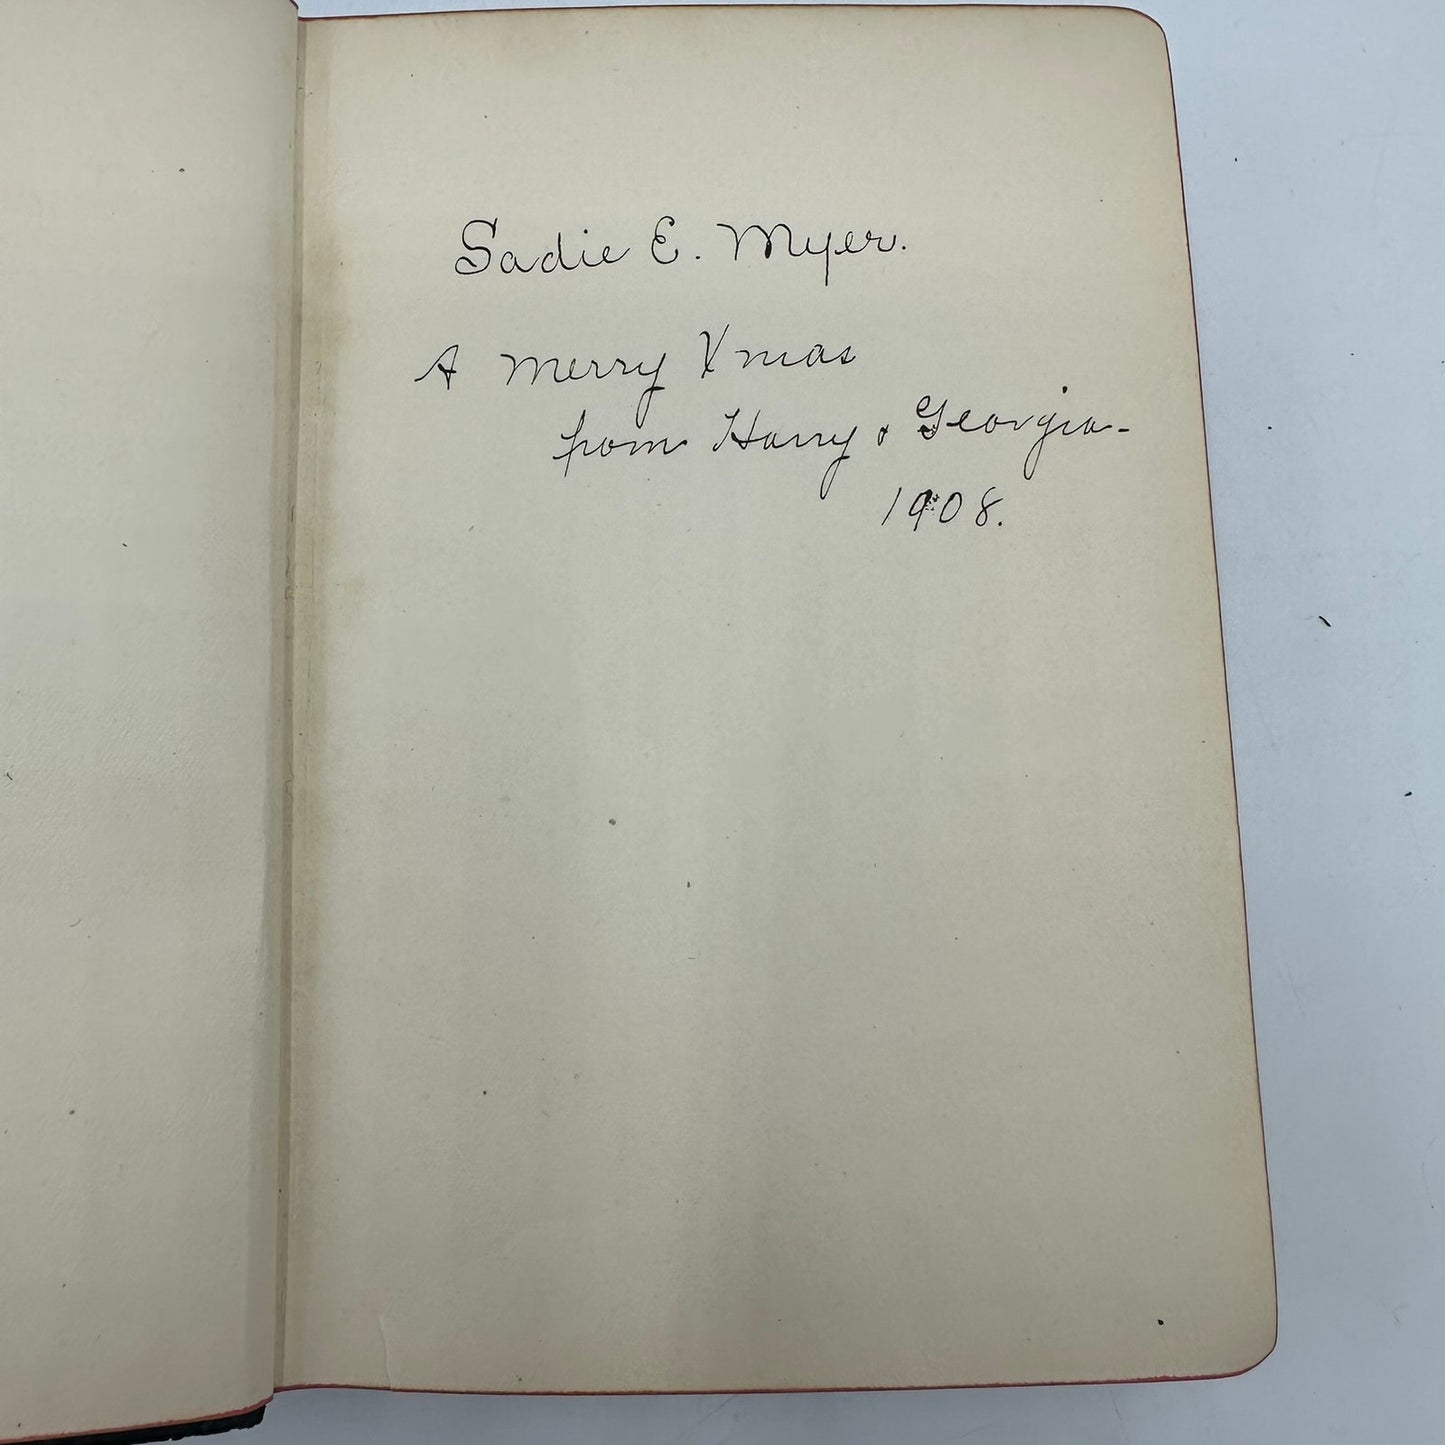 Sadie E. Myer.
A Merry Xmas
from Harry & Georgia-
1908.